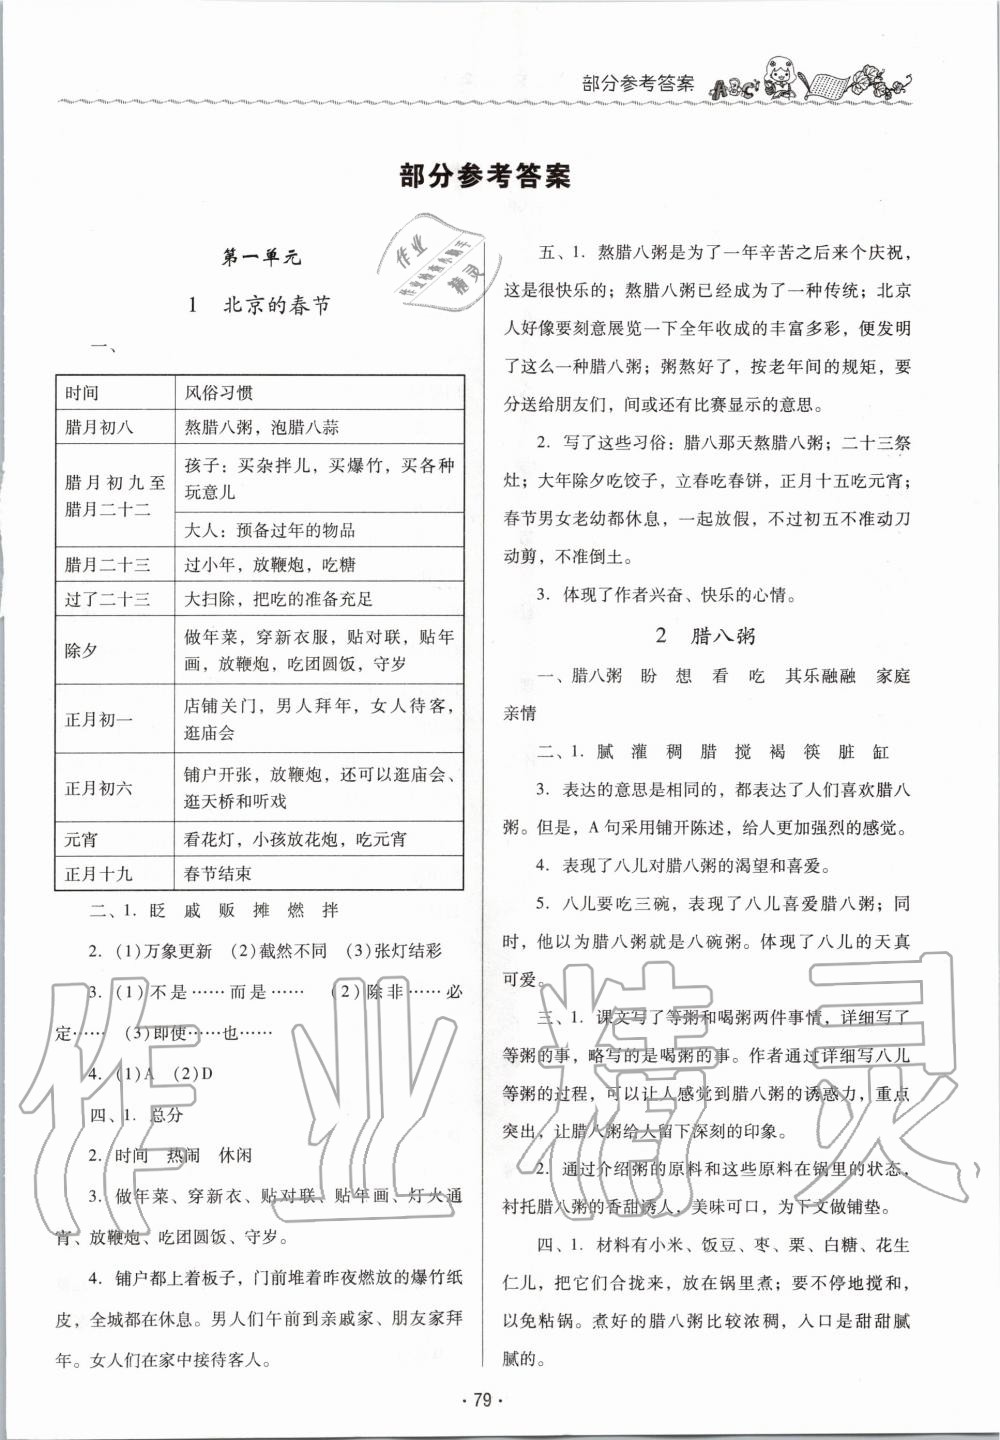 部分参考答案
ABC
部分参考答案
第一单元
1 北京的春节
一、
时间 风俗习惯
腊月初八 熬腊八粥，泡腊八蒜
腊月初九至
腊月二十二
孩子：买杂拌儿，买爆竹，买各种
玩意儿
大人：预备过年的物品
腊月二十三 过小年，放鞭炮，吃糖
过了二十三 大扫除，把吃的准备充足
除夕
做年菜，穿新衣服，贴对联，贴年
画，放鞭炮，吃团圆饭，守岁
正月初一
店铺关门，男人拜年，女人待客，
逛庙会
正月初六
铺户开张，放鞭炮，还可以逛庙会、
逛天桥和听戏
元宵 看花灯，小孩放花炮，吃元宵
正月十九 春节结束
二、1. 眨 戚 贩 摊 燃 拌
2. (1)万象更新 (2)截然不同 (3)张灯结彩
3. (1)不是……而是…… (2)除非……必
定…… (3)即使……也……
4. (1)A (2)D
四、1. 总分
2. 时间 热闹 休闲
3. 做年菜、穿新衣、贴对联、贴年画、灯火通
宵、放鞭炮、吃团圆饭、守岁。
4. 铺户都上着板子，门前堆着昨夜燃放的爆竹纸
皮，全城都在休息。男人们午前到亲戚家、朋友家拜
年。女人们在家中接待客人。
五、1. 熬腊八粥是为了一年辛苦之后来个庆祝，
这是很快乐的；熬腊八粥已经成为了一种传统；北京
人好像要刻意展览一下全年收成的丰富多彩，便发明
了这么一种腊八粥；粥熬好了，按老年间的规矩，要
分送给朋友们，间或还有比赛显示的意思。
2. 写了这些习俗：腊八那天熬腊八粥；二十三祭
灶；大年除夕吃饺子，立春吃春饼，正月十五吃元宵；
春节男女老幼都休息，一起放假，不过初五不准动刀
动剪，不准倒土。
3. 体现了作者兴奋、快乐的心情。
2 腊八粥
一、腊八粥 盼 想 看 吃 其乐融融 家庭
亲情
二、1. 腻 灌 稠 腊 搅 褐 筷 脏 缸
3. 表达的意思是相同的，都表达了人们喜欢腊八
粥。但是，A 句采用铺开陈述，给人更加强烈的感觉。
4. 表现了八儿对腊八粥的渴望和喜爱。
5. 八儿要吃三碗，表现了八儿喜爱腊八粥；同
时，他以为腊八粥就是八碗粥。体现了八儿的天真
可爱。
三、1. 课文写了等粥和喝粥两件事情，详细写了
等粥的事，略写的是喝粥的事。作者通过详细写八儿
等粥的过程，可以让人感觉到腊八粥的诱惑力，重点
突出，让腊八粥给人留下深刻的印象。
2. 通过介绍粥的原料和这些原料在锅里的状态，
衬托腊八粥的香甜诱人，美味可口，为下文做铺垫。
四、1. 材料有小米、饭豆、枣、栗、白糖、花生
仁儿，把它们合拢来，放在锅里煮；要不停地搅和，
以免粘锅。煮好的腊八粥比较浓稠，入口是甜甜腻
腻的。
· 79 ·
作业
作业检查小助手
精灵
作业精灵